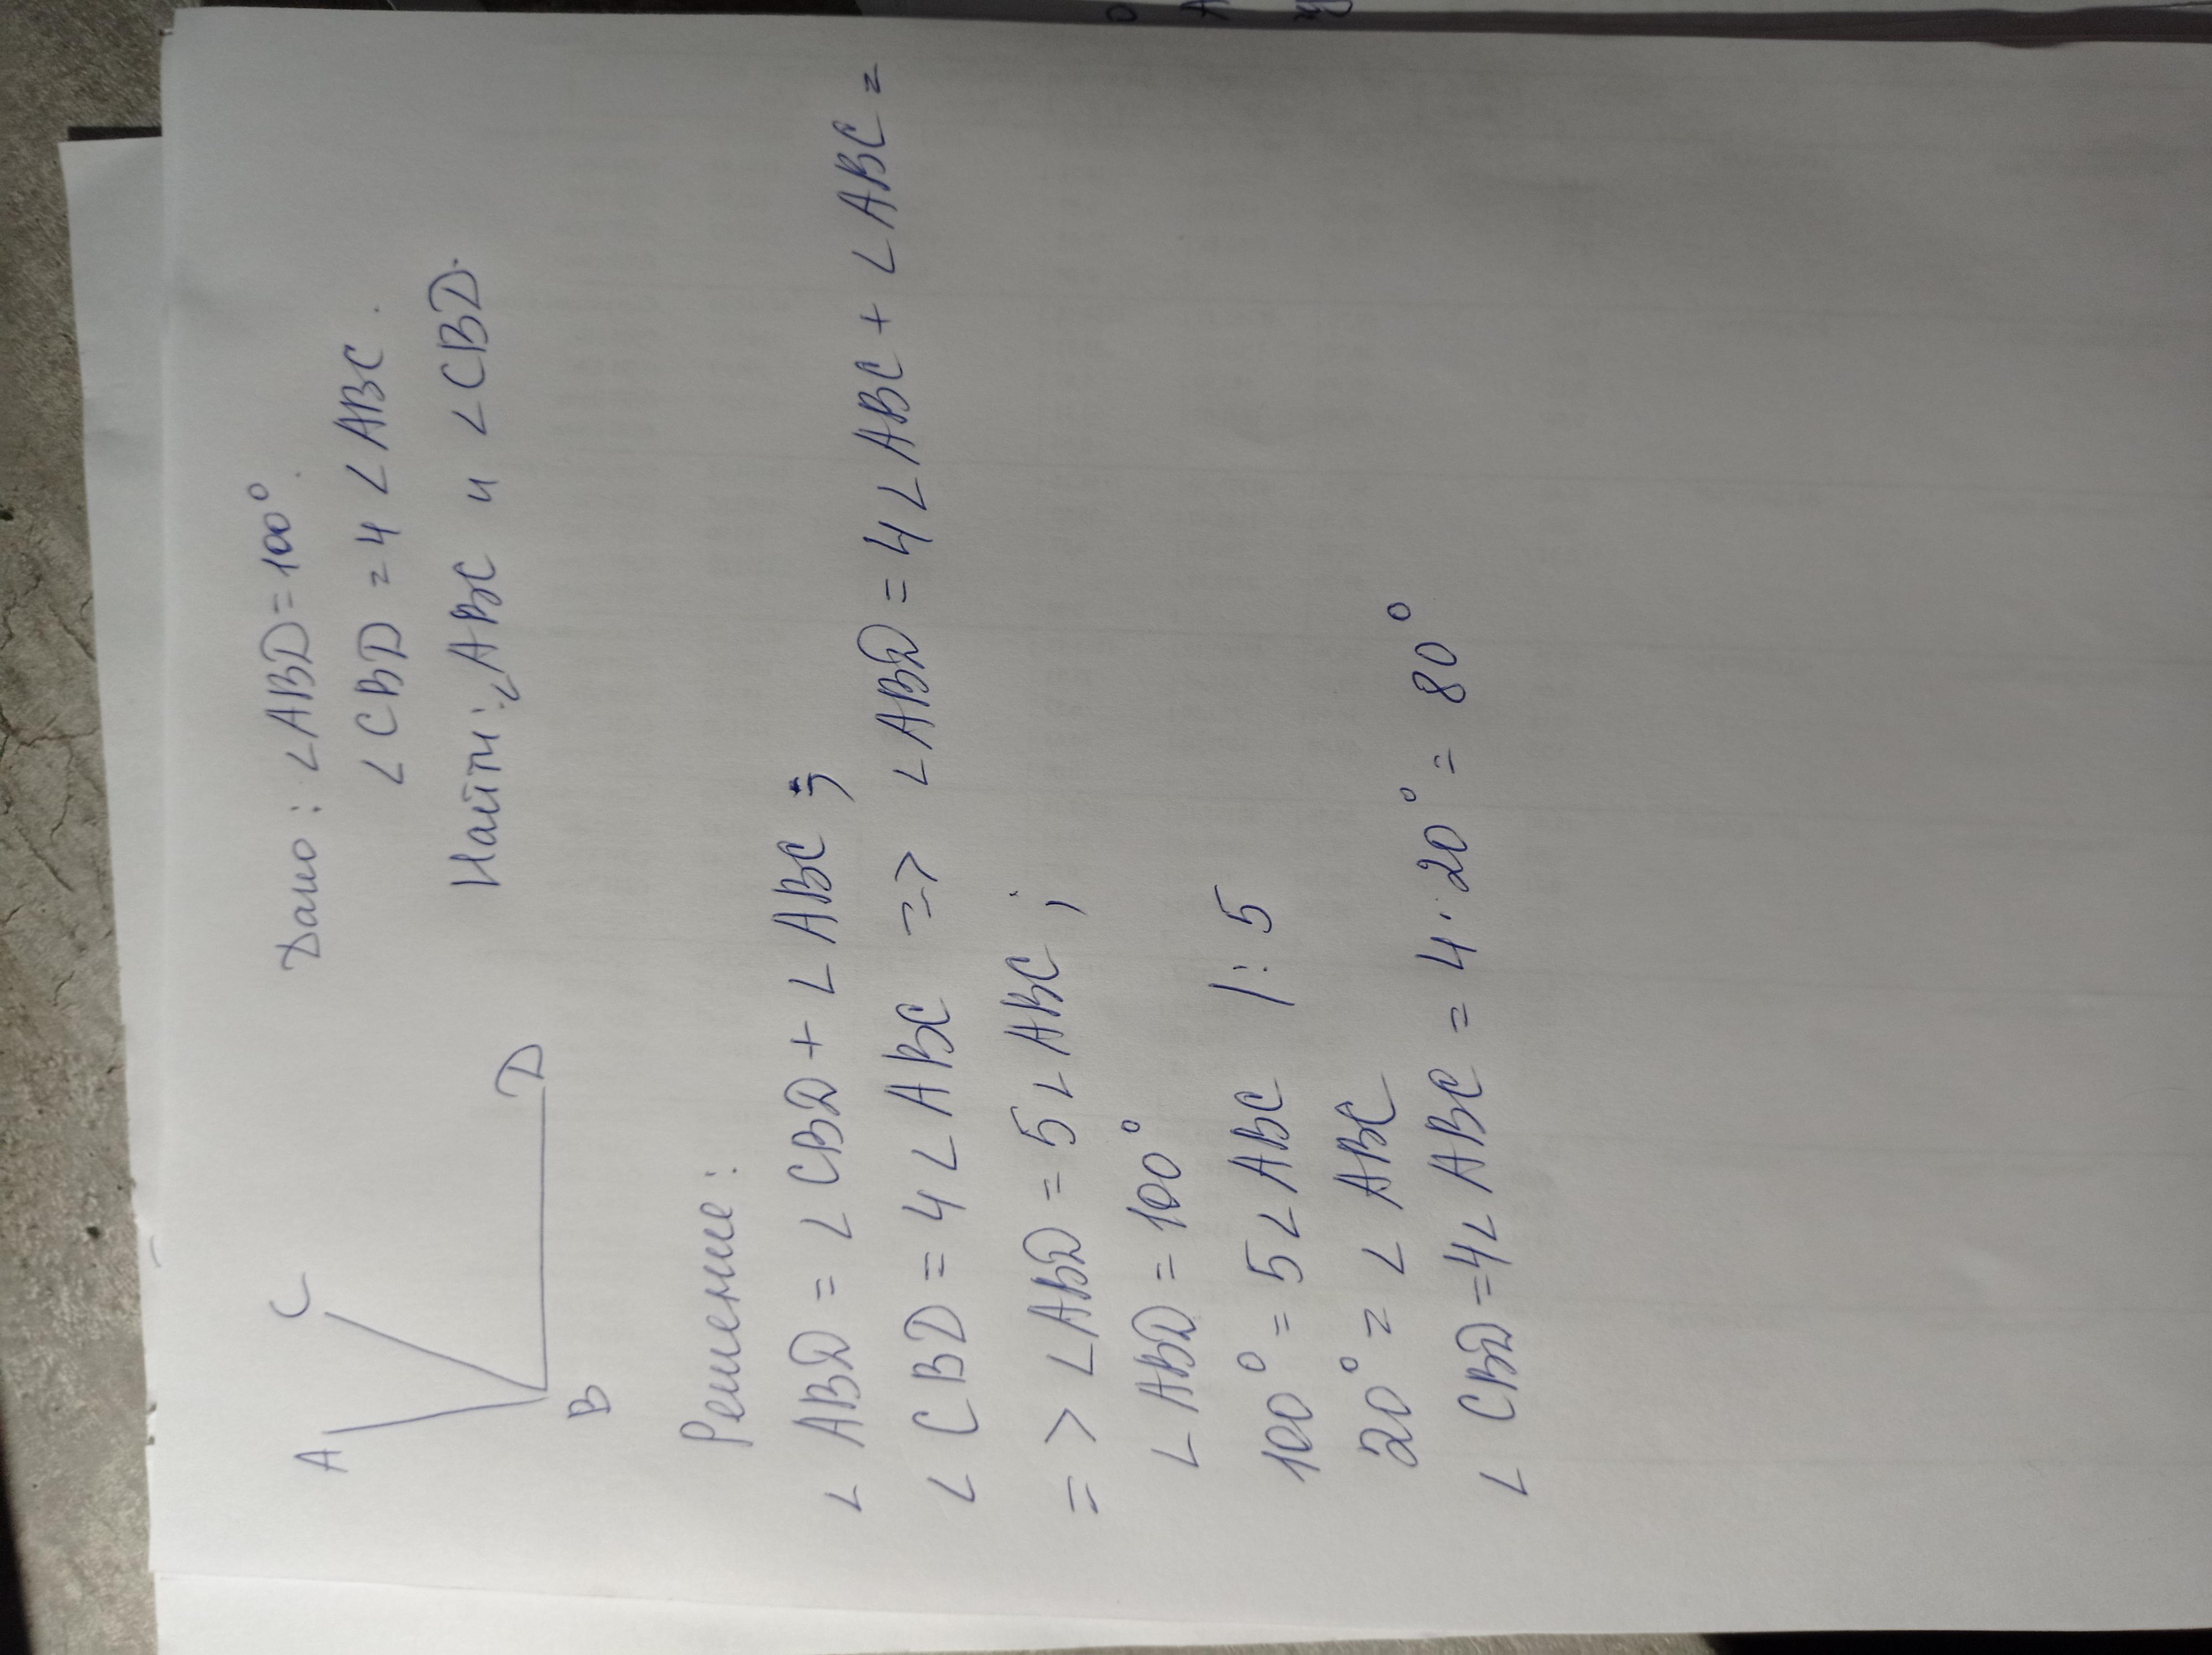 A
C
B
D
Дано: ∠ABD=100°.
∠CBD=4∠ABC.
Найти: ∠ABC и ∠CBD.
Решение:
∠ABD = ∠CBD + ∠ABC;
∠CBD = 4∠ABC => ∠ABD = 4∠ABC + ∠ABC =
=> ∠ABD = 5∠ABC;
∠ABD = 100°
100° = 5∠ABC /: 5
20° = ∠ABC
∠CBD = 4∠ABC = 4·20° = 80°